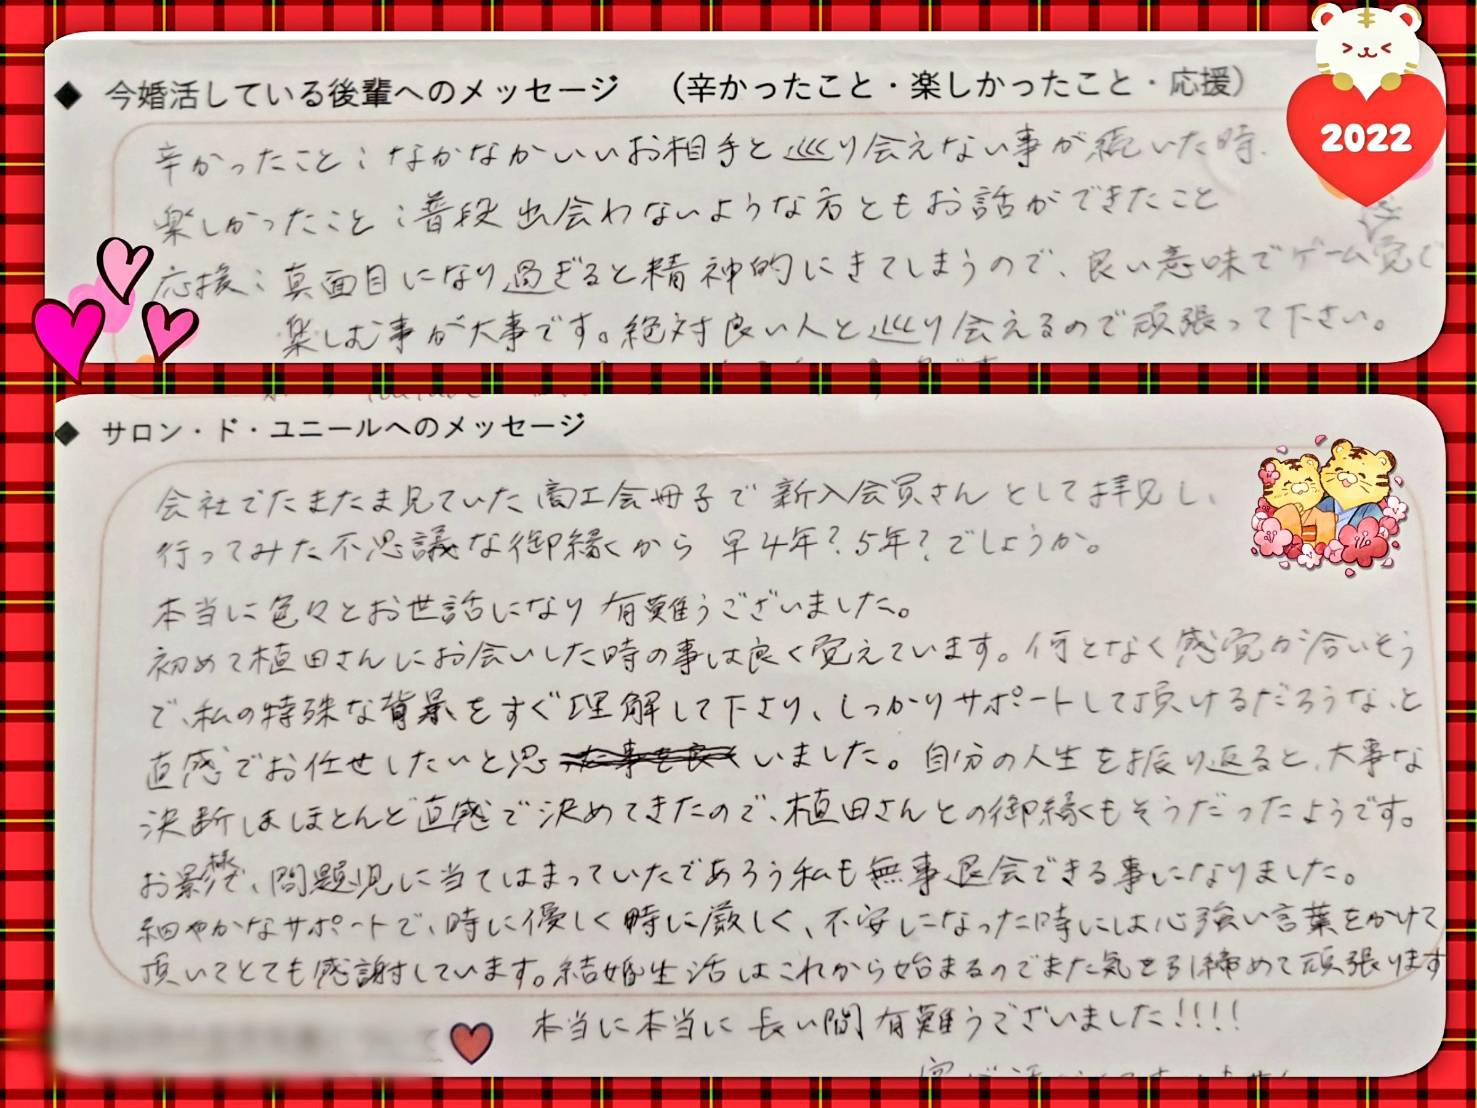 ◆ 今婚活している後輩へのメッセージ　（辛かったこと・楽しかったこと・応援）
2022
辛かったこと：なかなかいいお相手と巡り会えない事が続いた時.
楽しかったこと：普段出会わないような方ともお話ができたこと
応援：真面目になり過ぎると精神的にきてしまうので、良い意味でゲーム覚で
楽しむ事が大事です。絶対良い人と巡り会えるので頑張って下さい。
◆ サロン・ド・ユニールへのメッセージ
会社でたまたま見ていた商工会冊子で新入会員さんとして拝見し、
行ってみた不思議な御縁から 早4年？5年？でしょうか。
本当に色々とお世話になり有難うございました。
初めて植田さんにお会いした時の事は良く覚えています。何となく感覚が合いそう
で、私の特殊な背景をすぐ理解して下さり、しっかりサポートして頂けるだろうな、と
直感でお任せしたいと思いました。自分の人生を振り返ると、大事な
決断はほとんど直感で決めてきたので、植田さんとの御縁もそうだったようです。
お影様で、問題児に当てはまっていたであろう私も無事退会できる事になりました。
細やかなサポートで、時に優しく時に厳しく、不安になった時には心強い言葉をかけて
頂いてとても感謝しています。結婚生活はこれから始まるのでまた気を引締めて頑張ります
本当に本当に長い間有難うございました！！！！